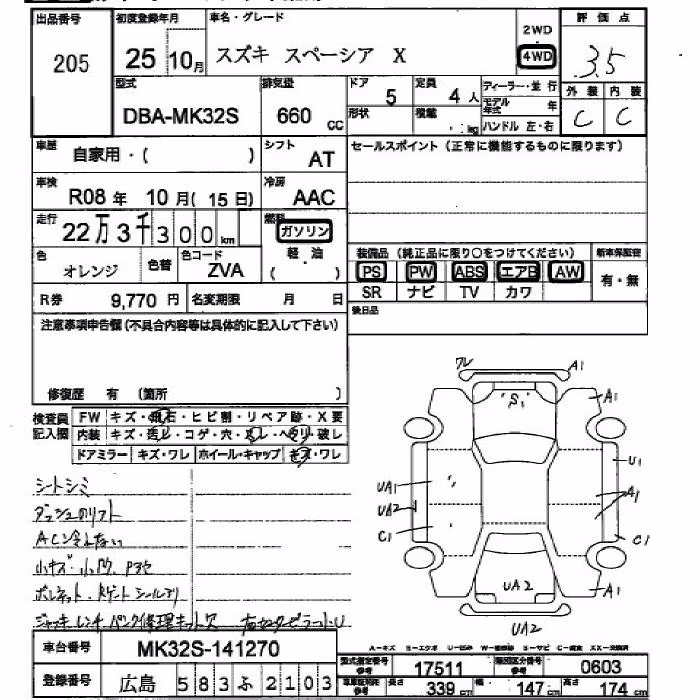 出品番号 初度登録年月 車名・グレード 2WD 評価点
205 25 10月 スズキ スペーシア X 4WD 3.5
型式 排気量 ドア 5 定員 4人 ディーラー・並行 外装 内装
DBA-MK32S 660 cc 形状 積載 kg モデル年式 年 C C
ハンドル 左・右
車歴 自家用・( ) シフト AT セールスポイント (正常に機能するものに限ります)
車検 R08年 10月( 15日) 冷房 AAC
走行 22万3千300km 燃料 ガソリン
軽・油
( )
装備品 (純正品に限り○をつけてください) 新車保証書
色 オレンジ 色替 色コード ZVA PS PW ABS エアB AW 有・無
SR ナビ TV カワ
R券 9,770円 名変期限 月 日 後日品
注意事項申告欄(不具合内容等は具体的に記入して下さい)
修復歴 有 (箇所 )
検査員記入欄 FW キズ・飛石・ヒビ割・リペア跡・X要
内装 キズ・汚レ・コゲ・穴・スレ・ヘタリ・破レ
ドアミラー キズ・ワレ ホイール・キャップ キズ・ワレ
ワレ A1
S1 A1
U1
UA1 A1
UA2
C1 C1
A1
UA2
UA2
シートシミ
ダッシュのリフト
AC冷えない
小キズ・小凹
ジャッキ レンチ パンク修理キット欠
車台番号 MK32S-141270
登録番号 広島 583ふ2103
A-キズ B-エクボ U-凹み W-補修跡 S-サビ C-腐食 XX-交換済
型式指定番号 参考 17511 類別区分番号 参考 0603
長さ 339cm 幅 147cm 高さ 174cm